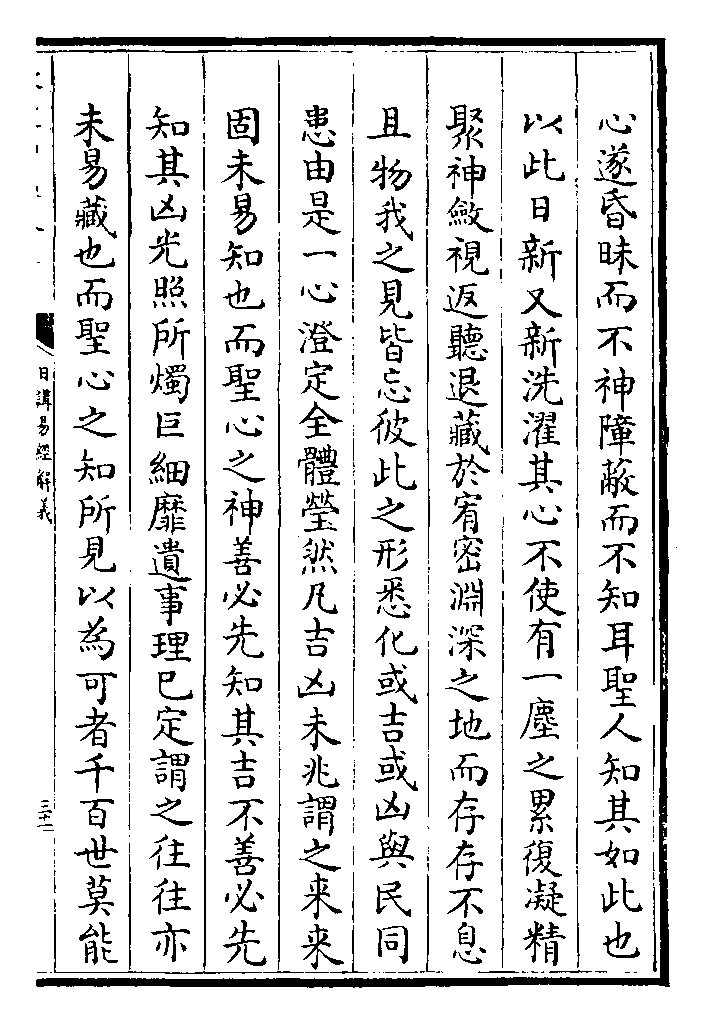 心遂昏昧而不神障蔽而不知耳聖人知其如此也
以此日新又新洗濯其心不使有一塵之累復凝精
聚神斂視返聽退藏於宥密淵深之地而存存不息
且物我之見皆忘彼此之形悉化或吉或凶與民同
患由是一心澄定全體瑩然凡吉凶未兆謂之来来
固未易知也而聖心之神善必先知其吉不善必先
知其凶光照所燭巨細靡遺事理已定謂之往往亦
未易藏也而聖心之知所見以為可者千百世莫能
日講易經解義
三十二